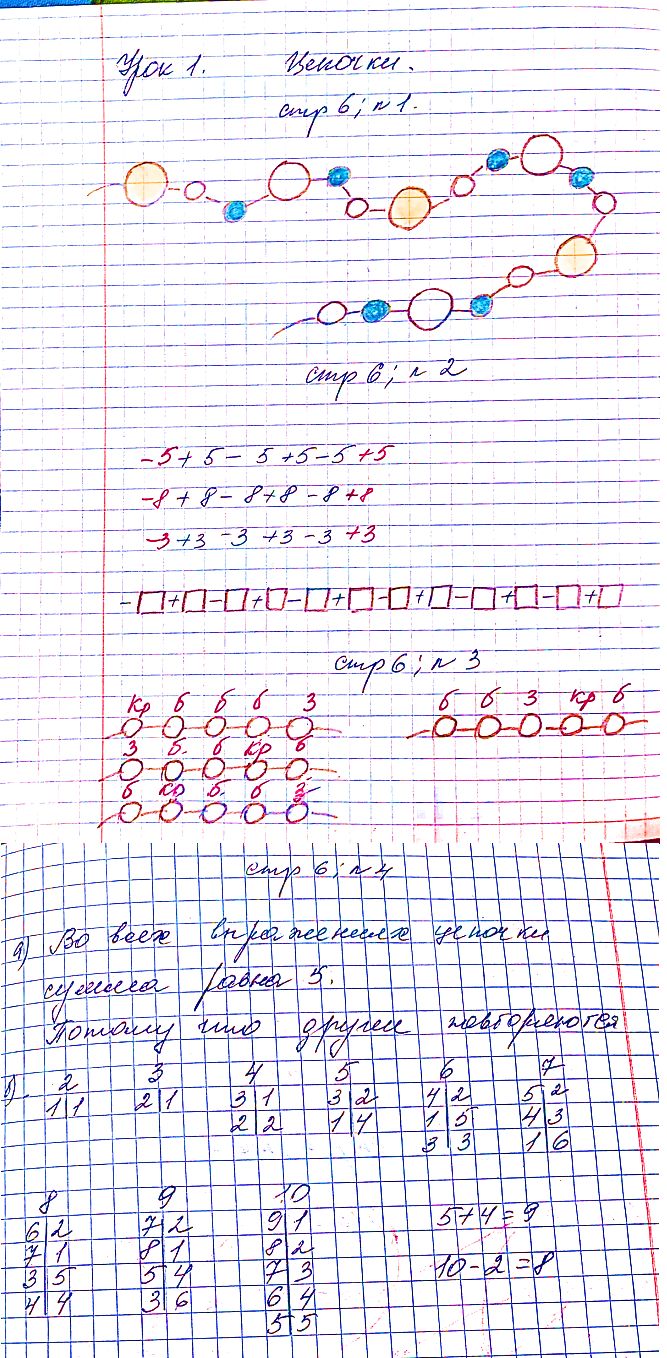 Урок 1. Цепочки.
стр 6; n 1.
стр 6; n 2
-5+5-5+5-5+5
-8+8-8+8-8+8
-3+3-3+3-3+3
-□+□-□+□-□+□-□+□-□+□-□+□
стр 6; n 3
кр б б б з
б б з кр б
з б. б кр б
б кр б. б з
стр 6; n 4
а) Во всех выражениях цепочки
сумма равна 5.
Потому что другие повторяются
б). 2 3 4 5 6 7
1|1 2|1 3|1 3|2 4|2 5|2
2|2 1|4 1|5 4|3
3|3 1|6
8 9 10
6|2 7|2 9|1 5+4=9
7|1 8|1 8|2
3|5 5|4 7|3 10-2=8
4|4 3|6 6|4
5|5